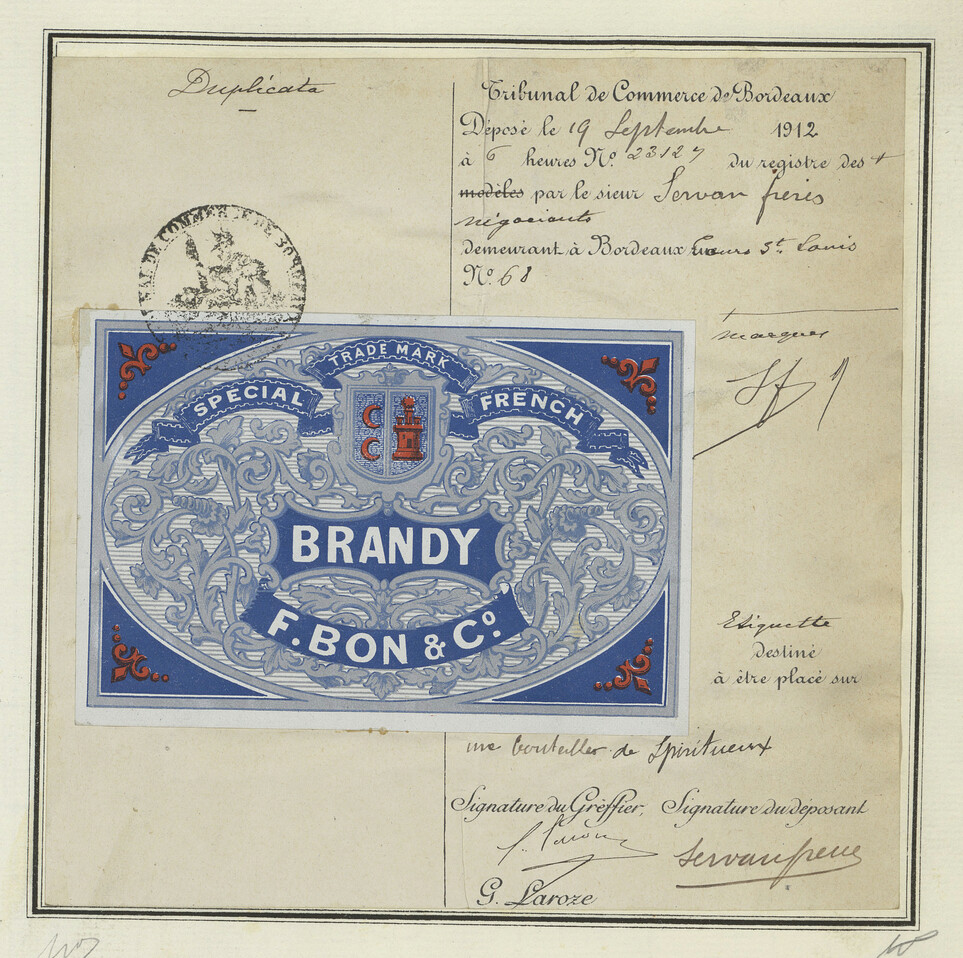 Duplicata
Tribunal de Commerce de Bordeaux
Déposé le 19 Septembre 1912
à 6 heures No. 23127 du registre des +
modèles par le sieur Servan frères
négociants
demeurant à Bordeaux Cours St. Louis
No. 68
TRIBUNAL DE COMMERCE DE BORDEAUX
marques
Sf
TRADE MARK
SPECIAL FRENCH
C
C
BRANDY
F. BON & Co.
Etiquette
destiné
à être placé sur
une bouteilles de Spiritueux
Signature du Greffier, Signature du déposant
Servan freres
G. Laroze